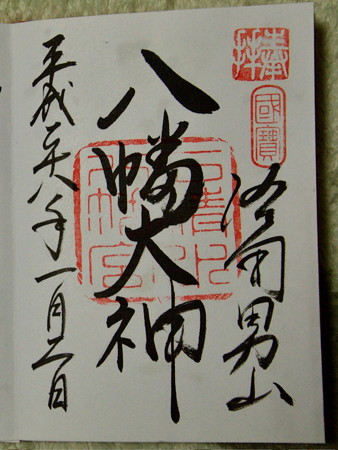 奉拝
國寶
洛南男山
八幡大神
石清水八幡宮
平成二十八年一月二日